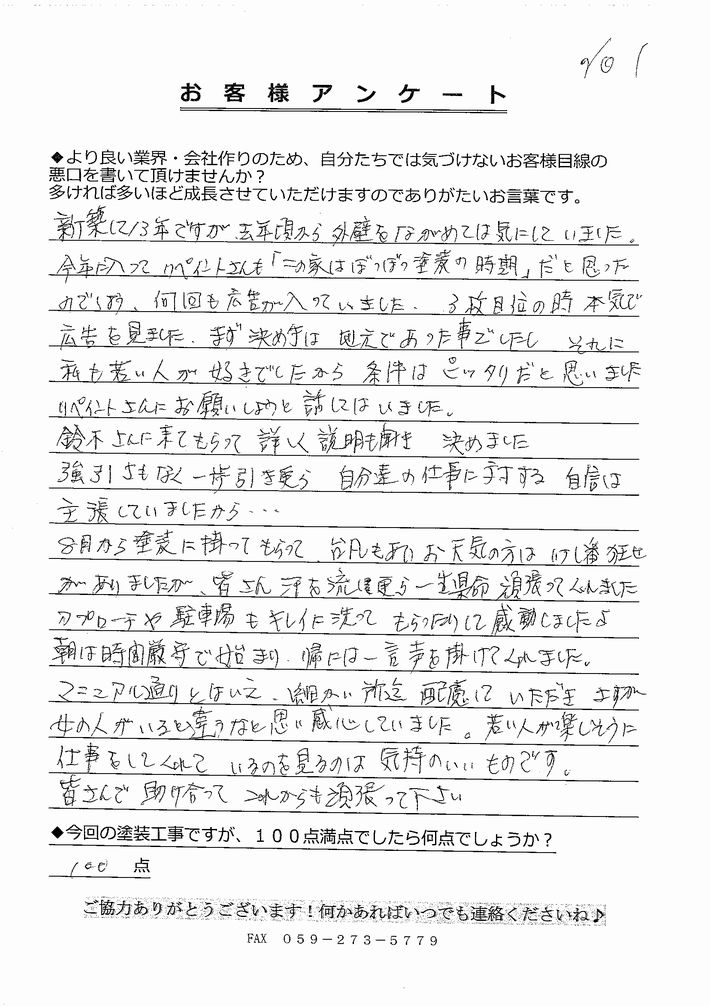 お客様アンケート
◆より良い業界・会社作りのため、自分たちでは気づけないお客様目線の
悪口を書いて頂けませんか？
多ければ多いほど成長させていただけますのでありがたいお言葉です。
新築して13年ですが去年頃から外壁をながめては気にしていました。
今年に入ってリペイントさんも「この家はぼつぼつ塗装の時期」だと思った
のでしょう、何回も広告が入っていました。3枚目位の時本気で
広告を見ました。まず決め手は地元であった事でしたし それに
私も若い人が好きでしたから 条件はピッタリだと思いました
リペイントさんにお願いしようと話してはいました。
鈴木さんに来てもらって 詳しく説明も聞き 決めました
強引さもなく一歩引き乍ら 自分達の仕事に対する 自信は
主張していましたから・・・
8月から塗装に掛ってもらって、台風もありお天気の方は 番狂せ
がありましたが、皆さん汗を流し乍ら一生県命頑張ってくれました
アプローチや駐車場もキレイに洗って もらったりして感動しましたよ
朝は時間厳守で始まり、帰には一言声を掛けてくれました。
マニュアル通りとはいえ、細かい所迄 配慮して いただき さすが
女の人がいると違うなと思い感心していました。若い人が楽しそうに
仕事をしてくれて いるのを見るのは 気持のいいものです。
皆さんで 助け合って これからも頑張って下さい
◆今回の塗装工事ですが、１００点満点でしたら何点でしょうか？
100 点
ご協力ありがとうございます！何かあればいつでも連絡くださいね♪
FAX ０５９－２７３－５７７９